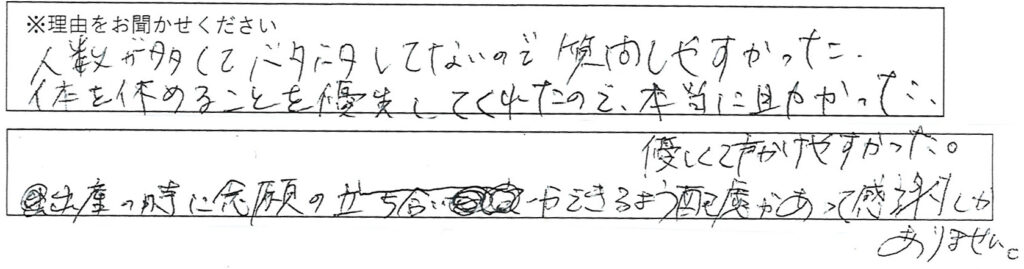 ※理由をお聞かせください
人数が多くてバタバタしてないので質問しやすかった。
体を休めることを優先してくれたので、本当に助かった。
優しくて声かけやすかった。
出産の時に念願の立ち合いができるよう配慮があって感謝しか
ありません。